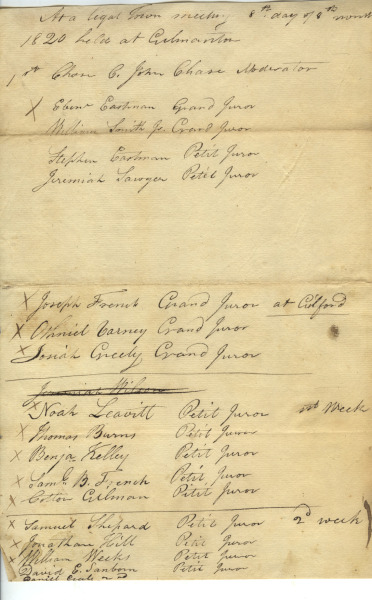 At a legal Town meeting 8th day of 8th month
1820 held at Gilmanton
1st Chose C. John Chase Moderator
X Ebenr Eastman Grand Juror
William Smith Jr Grand Juror
Stephen Eastman Petit Juror
Jeremiah Sawyer Petit Juror
X Joseph French Grand Juror at Gilford
X Othniel Varney Grand Juror
X Josiah Greely Grand Juror
Jeremiah Wilson
X Noah Leavitt Petit Juror 1st Week
X Thomas Burns Petit Juror
X Benja Kelley Petit Juror
X Saml B. French Petit Juror
X Cotton Gilman Petit Juror
X Samuel Shepard Petit Juror 2d week
X Jonathan Hill Petit Juror
X William Weeks Petit Juror
David E. Sanborn Petit Juror
Daniel